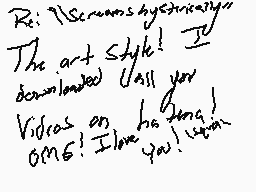 Re: \\Screams hysterically\\
The art style! I
downloaded all you
Videos on hatena!
OMG! I love you!